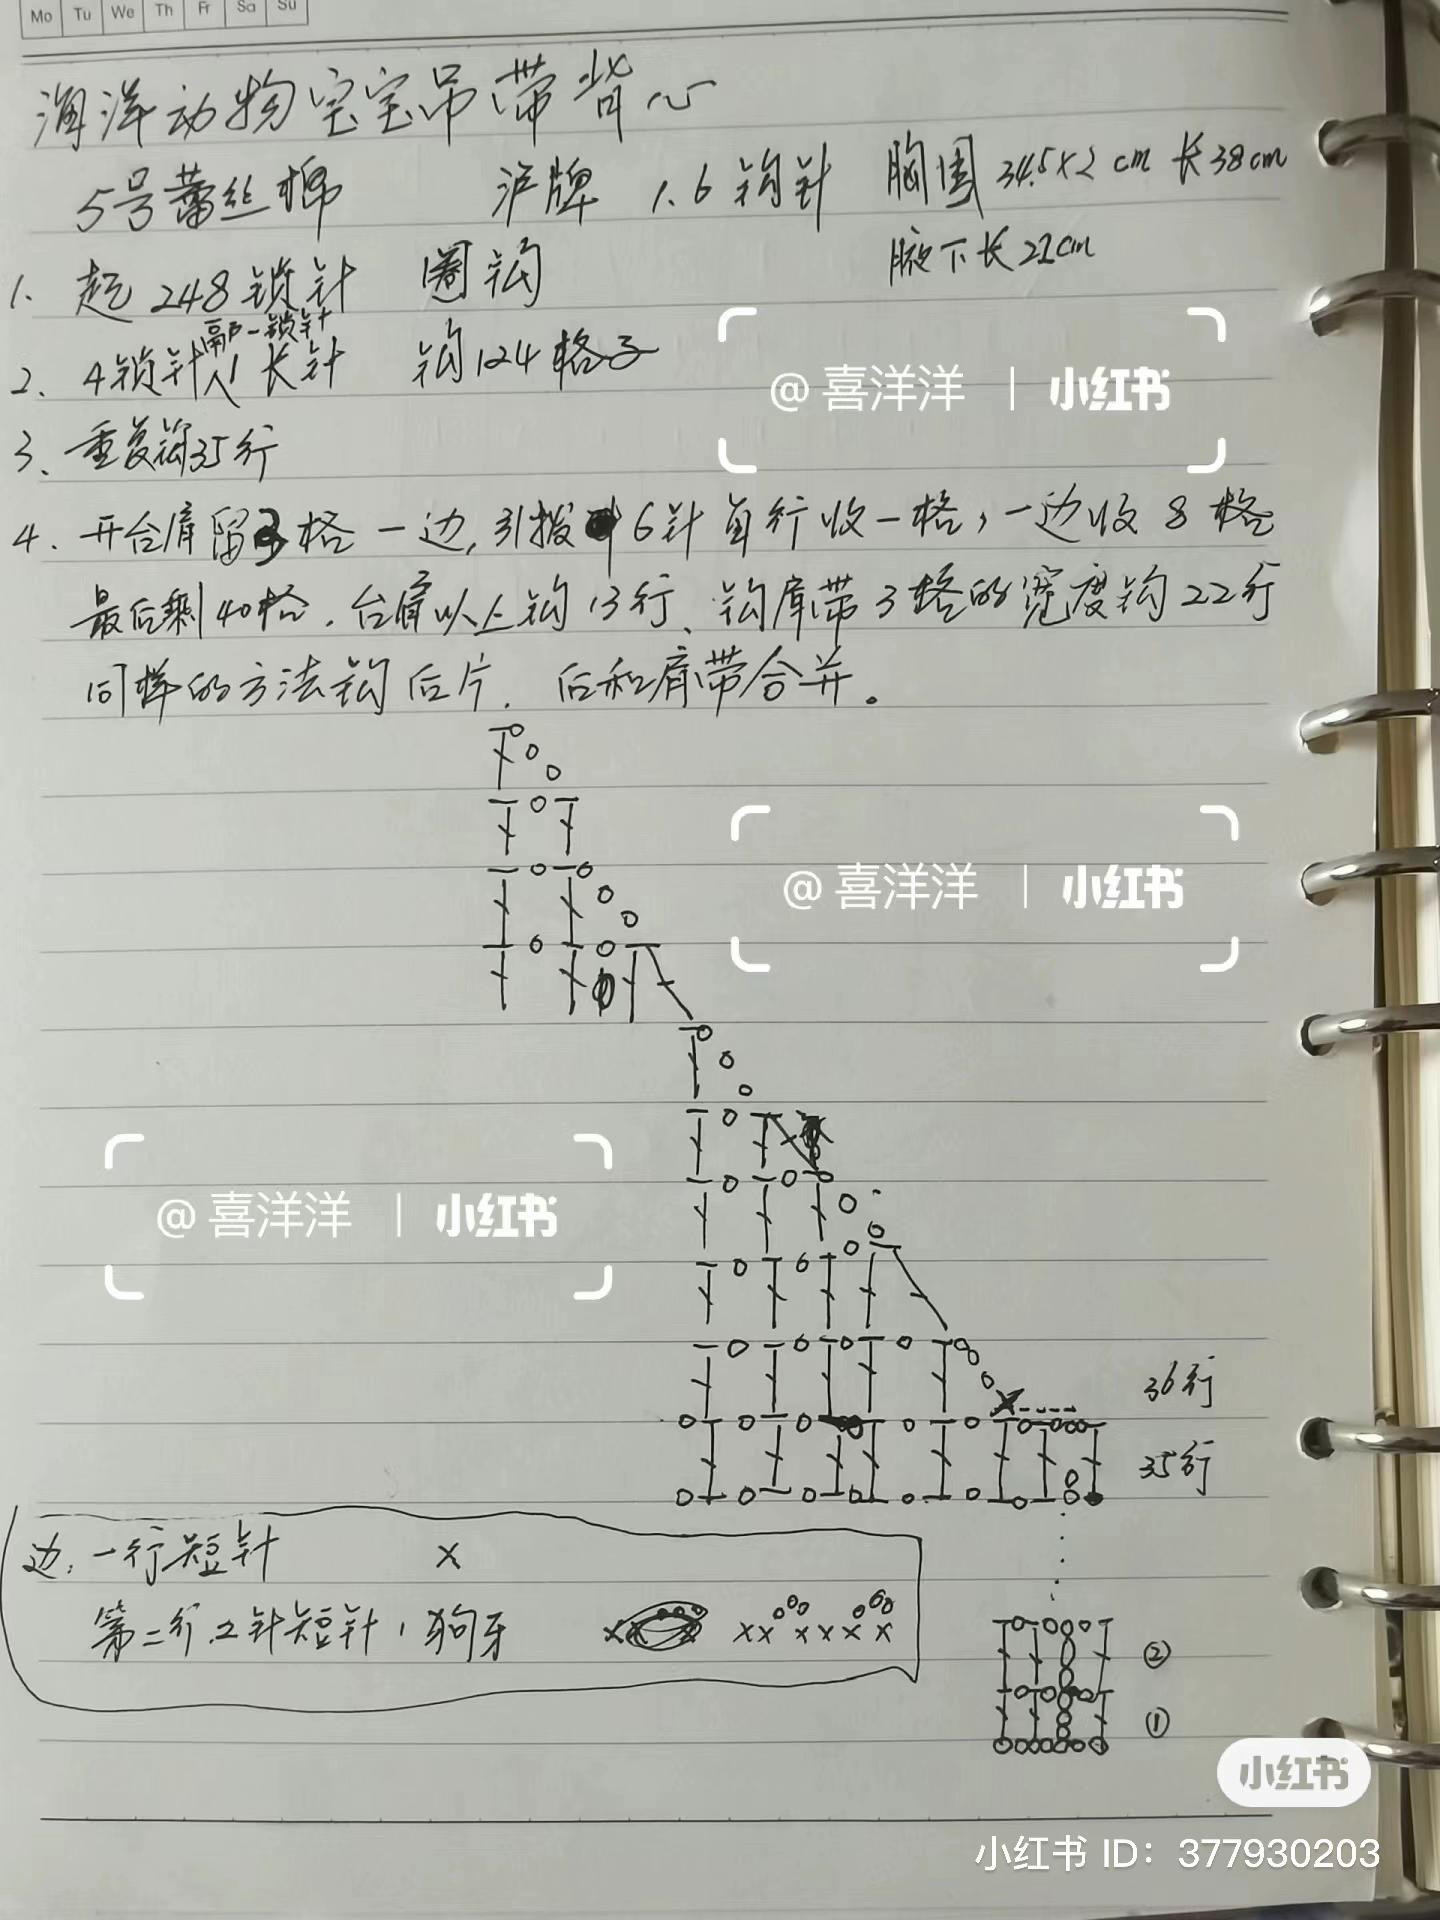 Mo Tu We Th Fr Sa Su
海洋动物宝宝吊带背心
5号蕾丝棉 沪牌 1.6钩针 胸围 34.5×2 cm 长38cm
腋下长21cm
1、起248锁针 圈钩
隔一锁针
2、4锁针 1长针 钩124格子
@喜洋洋 | 小红书
3、重复钩35行
4、开台肩留3格一边,引拨 6针每行收一格,一边收8格
最后剩40格.台肩以上钩13行、钩肩带3格的宽度钩22行
同样的方法钩后片.后和肩带合并。
@喜洋洋 | 小红书
@喜洋洋 | 小红书
36行
35行
边:一行短针 ×
第二行.2针短针1狗牙
②
①
小红书
小红书 ID：377930203